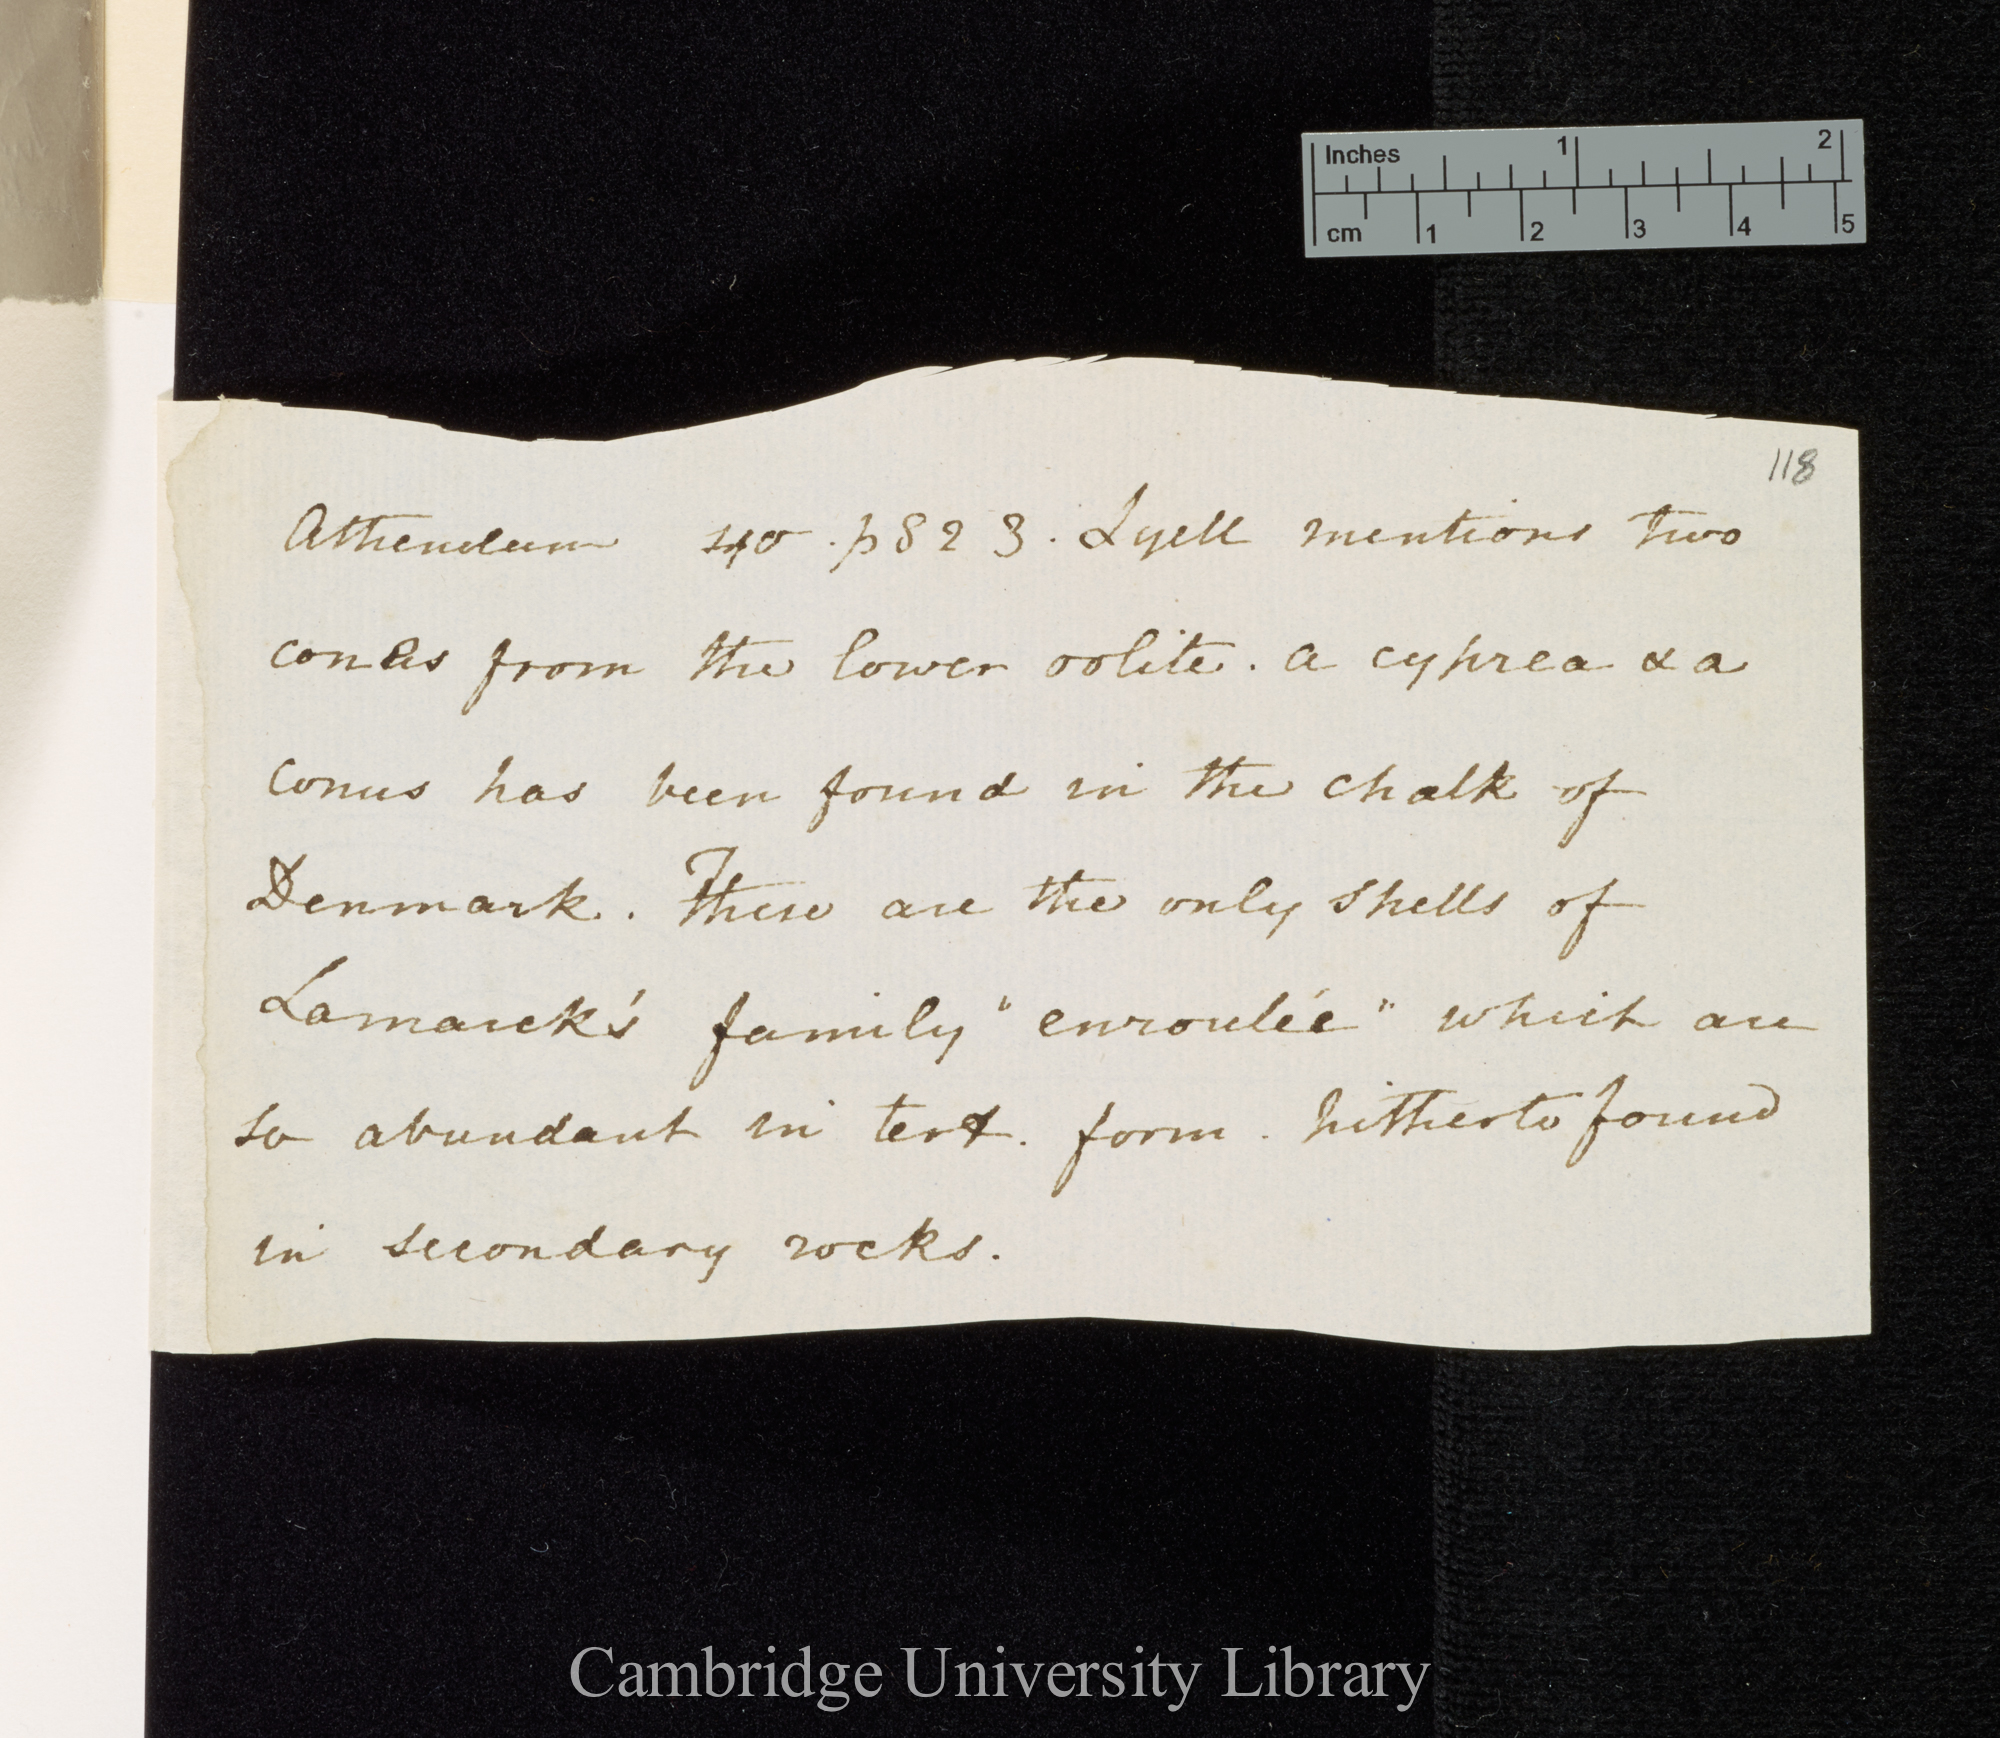 Inches 1 2
cm 1 2 3 4 5
118
Atheneum 1840. p823. Lyell mentions two
cones from the lower oolite. a cyprea & a
conus has been found in the chalk of
Denmark. These are the only shells of
Lamarck's family "enroulée" which are
so abundant in tert. form. hitherto found
in secondary rocks.
Cambridge University Library